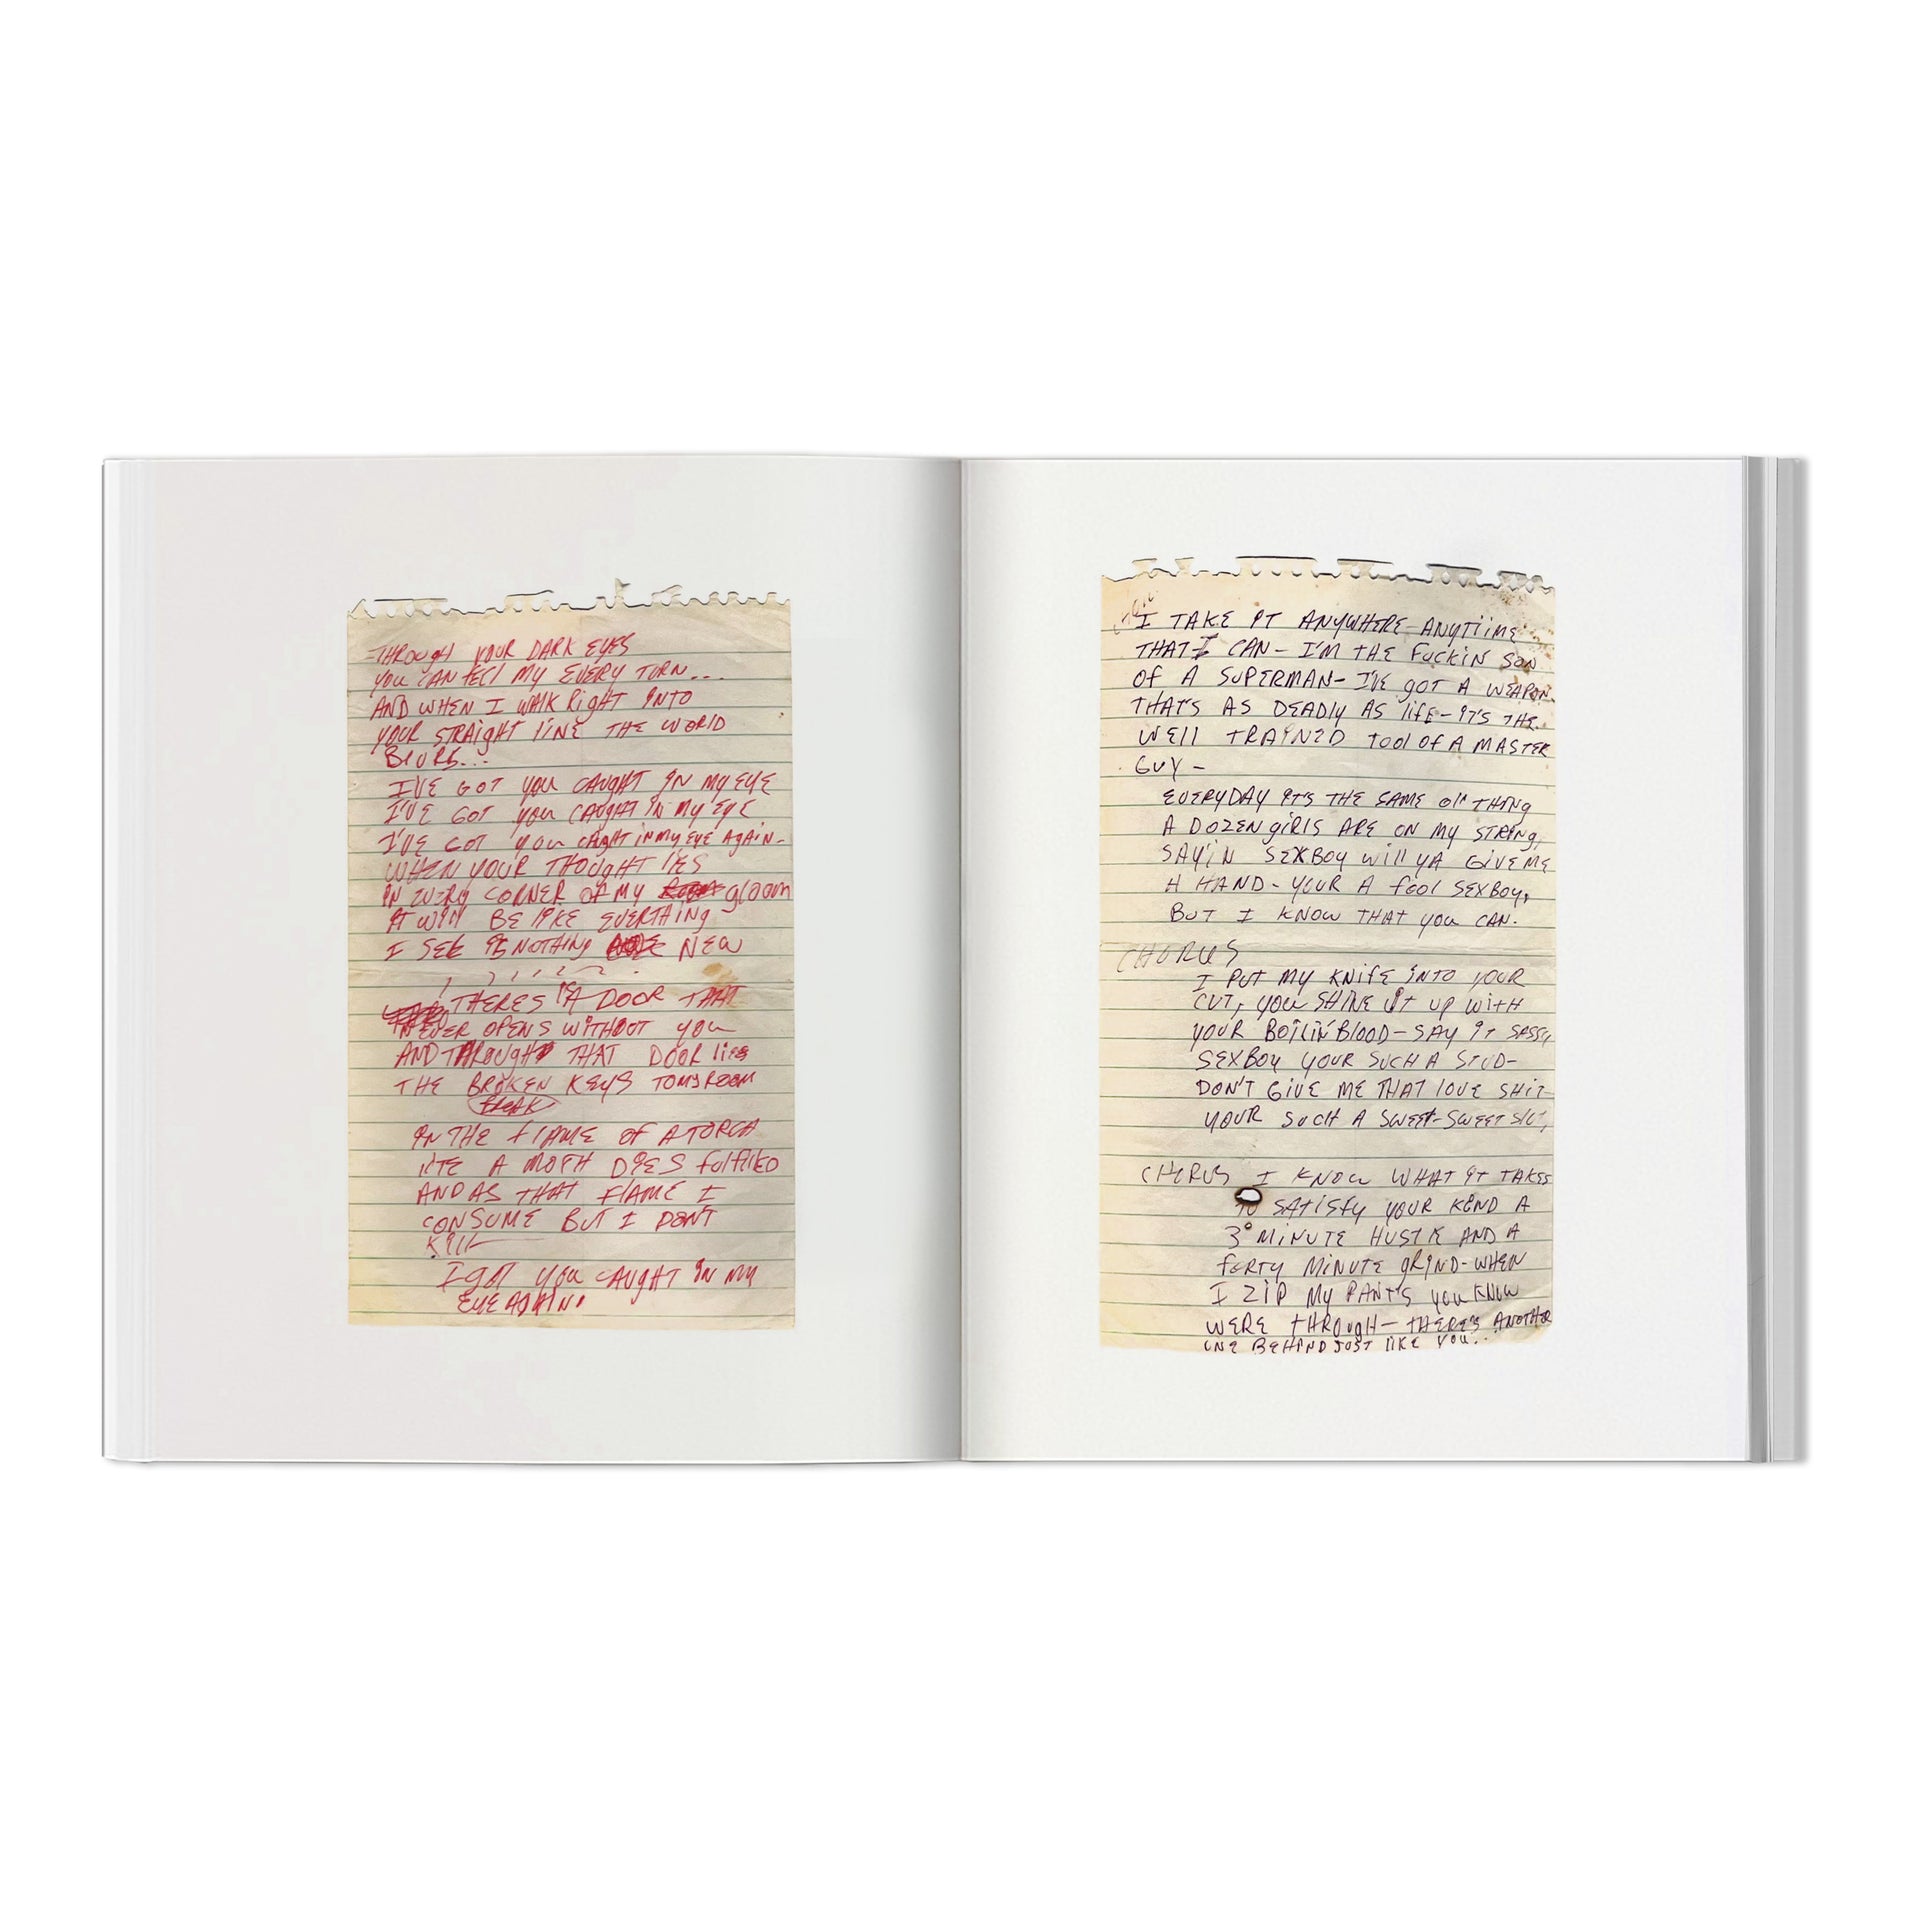 THROUGH YOUR DARK EYES
YOU CAN FEEL MY EVERY TURN...
AND WHEN I WALK RIGHT INTO
YOUR STRAIGHT LINE THE WORLD
BLURS...
I'VE GOT YOU CAUGHT IN MY EYE
I'VE GOT YOU CAUGHT IN MY EYE
I'VE GOT YOU CAUGHT IN MY EYE AGAIN-
WHEN YOUR THOUGHT LIES
IN EVERY CORNER OF MY gloom
IT WILL BE LIKE EVERTHING
I SEE IS NOTHING NEW
THERES A DOOR THAT
NEVER OPENS WITHOUT YOU
AND THROUGH THAT DOOR LIES
THE BROKEN KEYS TO MY ROOM
BREAK
IN THE FLAME OF A TORCH
LIKE A MOTH DIES FULFILLED
AND AS THAT FLAME I
CONSUME BUT I DON'T
KILL
I GOT YOU CAUGHT IN MY
EYE AGAIN!
I TAKE IT ANYWHERE-ANYTIIME
THAT I CAN- I'M THE FUCKIN SON
OF A SUPERMAN- I'VE GOT A WEAPON
THAT'S AS DEADLY AS LIFE-IT'S THE
WELL TRAINED TOOL OF A MASTER
GUY-
EVERYDAY IT'S THE SAME OL' THING
A DOZEN GIRLS ARE ON MY STRING,
SAY'IN SEXBOY WILL YA GIVE ME
A HAND- YOUR A FOOL SEXBOY,
BUT I KNOW THAT YOU CAN.
CHORUS
I PUT MY KNIFE INTO YOUR
CUT, YOU SHINE IT UP WITH
YOUR BOILIN' BLOOD-SAY IT SASSY
SEXBOY YOUR SUCH A STUD-
DON'T GIVE ME THAT LOVE SHIT-
YOUR SUCH A SWEET-SWEET SLUT,
CHORUS I KNOW WHAT IT TAKES
TO SATISFY YOUR KIND A
3 MINUTE HUSTLE AND A
FORTY MINUTE GRIND-WHEN
I ZIP MY PANT'S YOU KNOW
WERE THROUGH-THERE'S ANOTHER
ONE BEHIND JUST LIKE YOU..